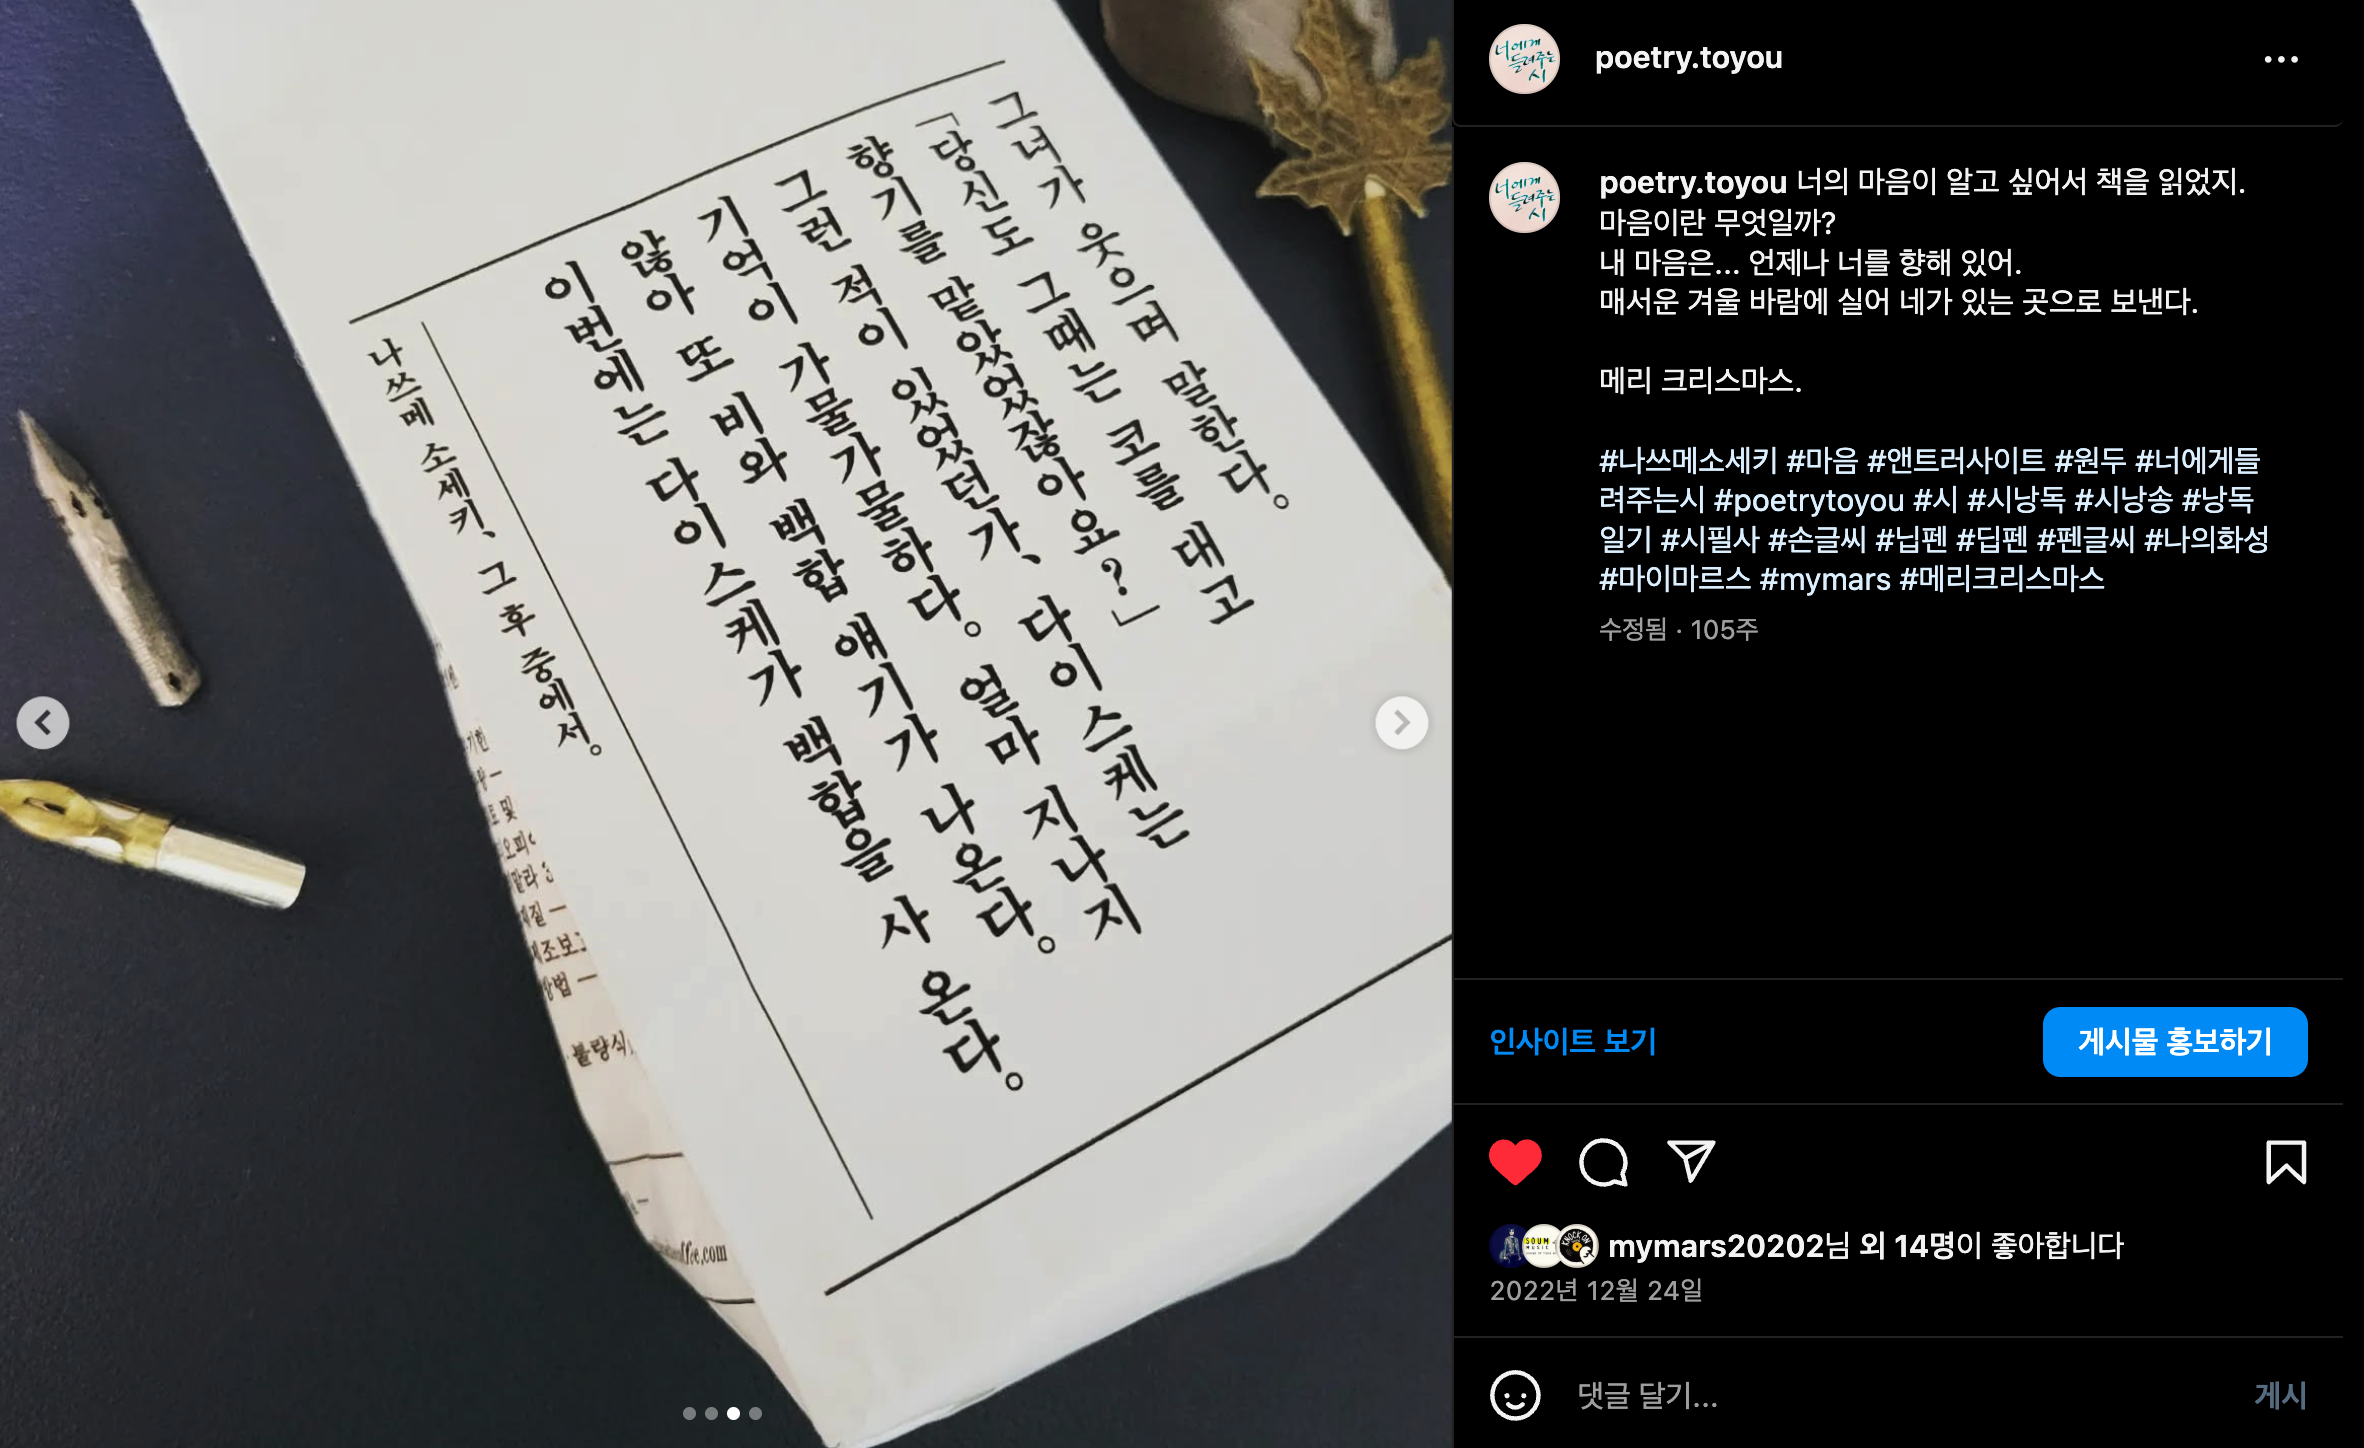 그녀가 웃으며 말한다。
「당신도 그때는 코를 대고
향기를 맡았었잖아요?」
그런 적이 있었던가、 다이스케는
기억이 가물가물하다。 얼마 지나지
않아 또 비와 백합 얘기가 나온다。
이번에는 다이스케가 백합을 사 온다。
나쓰메 소세키、 그 후 중에서。
및
불량식
ffee.com
너에게
들려주는
시
poetry.toyou
너에게
들려주는
시
poetry.toyou 너의 마음이 알고 싶어서 책을 읽었지.
마음이란 무엇일까?
내 마음은... 언제나 너를 향해 있어.
매서운 겨울 바람에 실어 네가 있는 곳으로 보낸다.
메리 크리스마스.
#나쓰메소세키 #마음 #앤트러사이트 #원두 #너에게들
려주는시 #poetrytoyou #시 #시낭독 #시낭송 #낭독
일기 #시필사 #손글씨 #닙펜 #딥펜 #펜글씨 #나의화성
#마이마르스 #mymars #메리크리스마스
수정됨 · 105주
인사이트 보기
게시물 홍보하기
SOUM
MUSIC
KNOCK ON
mymars20202님 외 14명이 좋아합니다
2022년 12월 24일
댓글 달기...
게시